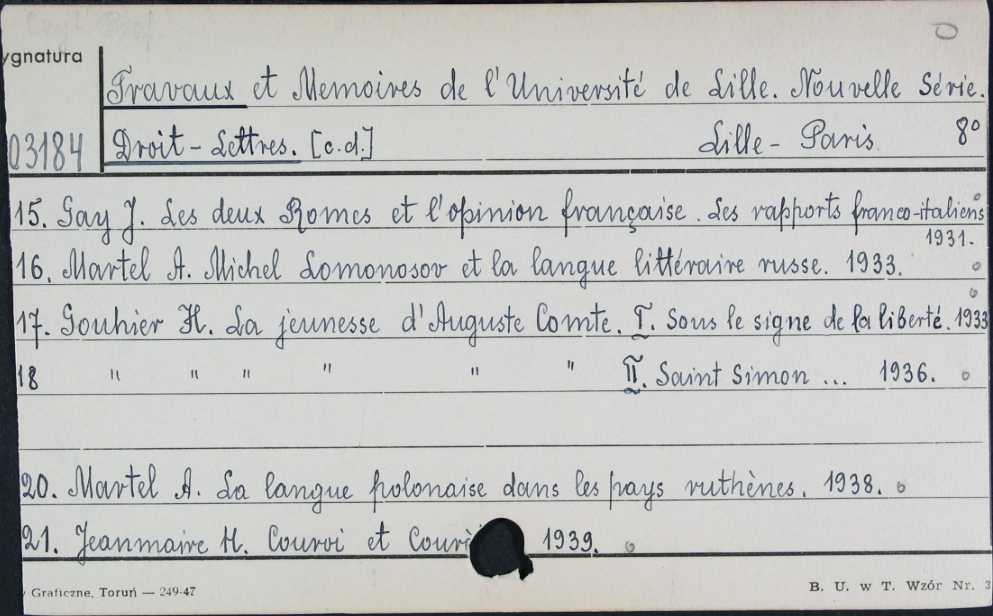 ygnatura
Travaux et Memoires de l'Université de Lille. Nouvelle Série.
03184 Droit-Lettres. [c.d.] Lille-Paris 8°
15. Gay J. Les deux Romes et l'opinion française. Les rapports franco-italiens
1931.
16. Martel A. Michel Lomonosov et la langue littéraire russe. 1933.
17. Gouhier H. La jeunesse d'Auguste Comte. I. Sous le signe de la liberté. 1933
18 " " " " " " II. Saint Simon ... 1936.
20. Martel A. La langue polonaise dans les pays ruthènes. 1938.
21. Jeanmaire H. Couroi et 1939.
Graficzne, Toruń — 249-47 B. U. w T. Wzór Nr. 3